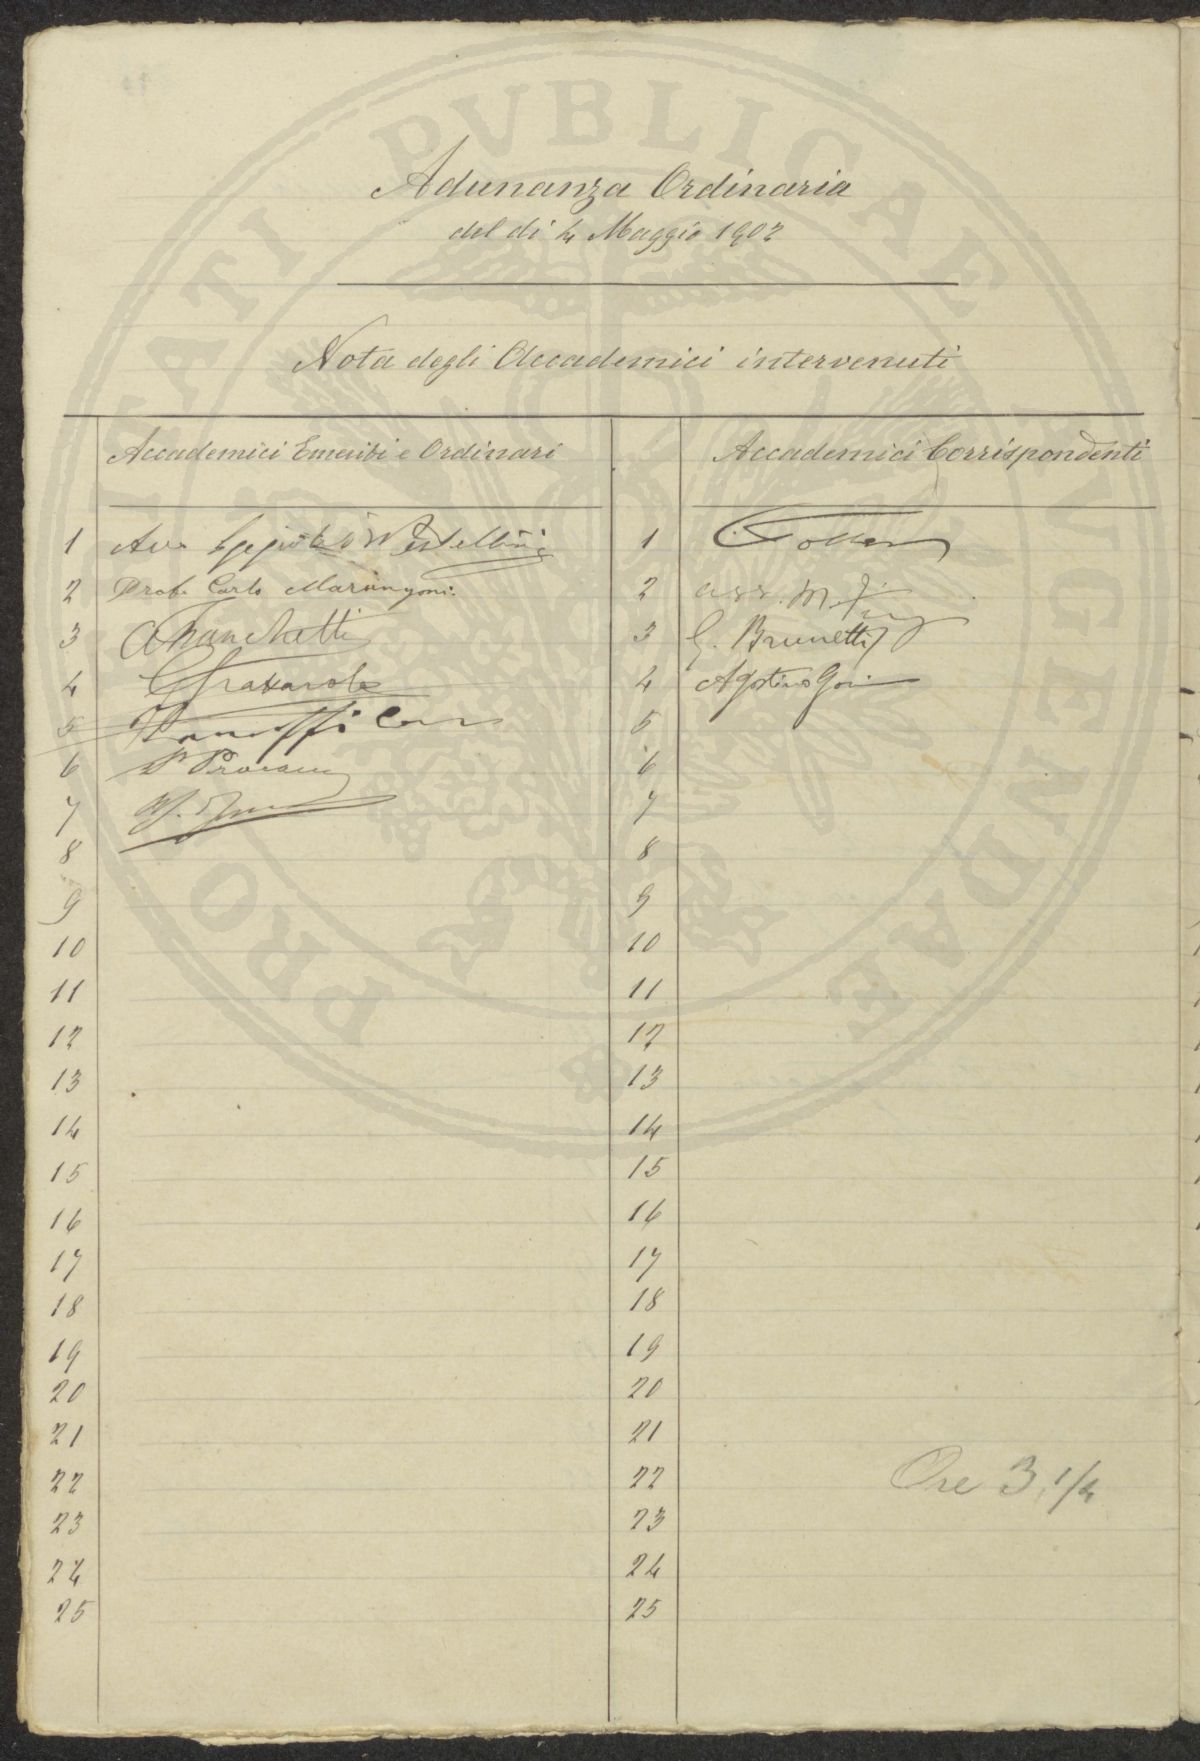 Adunanza Ordinaria
del dì 4 Maggio 1902
Nota degli Accademici intervenuti
Accademici Emeriti e Ordinari
Accademici Corrispondenti
1 Avv
2 Prof. Carlo Marangoni
3 A Franchetti
4
5
6
7
8
9
10
11
12
13
14
15
16
17
18
19
20
21
22
23
24
25
1
2
3 G. Brunetti
4 Agostino Gori
5
6
7
8
9
10
11
12
13
14
15
16
17
18
19
20
21
22
23
24
25
Ore 3 1/4
PROSPERITATI PVBLICAE AVGENDAE